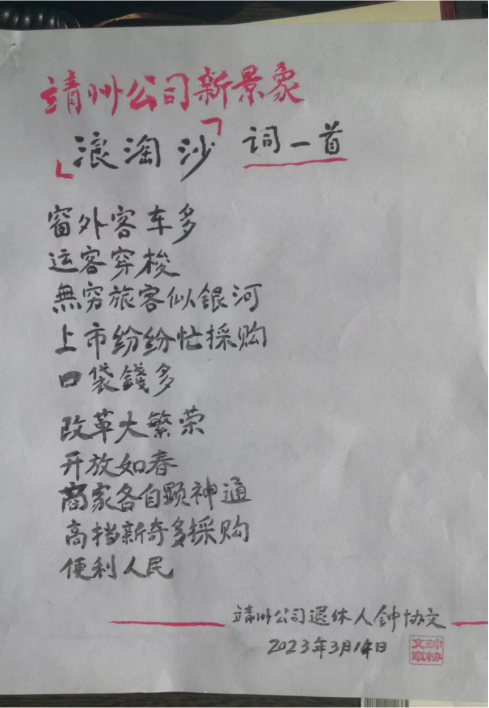 靖州公司新景象
「浪淘沙」 词一首
窗外客车多
运客穿梭
無穷旅客似銀河
上市纷纷忙採购
口袋錢多
改革大繁荣
开放如春
商家各自顕神通
高档新奇多採购
便利人民
靖州公司退休人钟协文
2023年3月14日